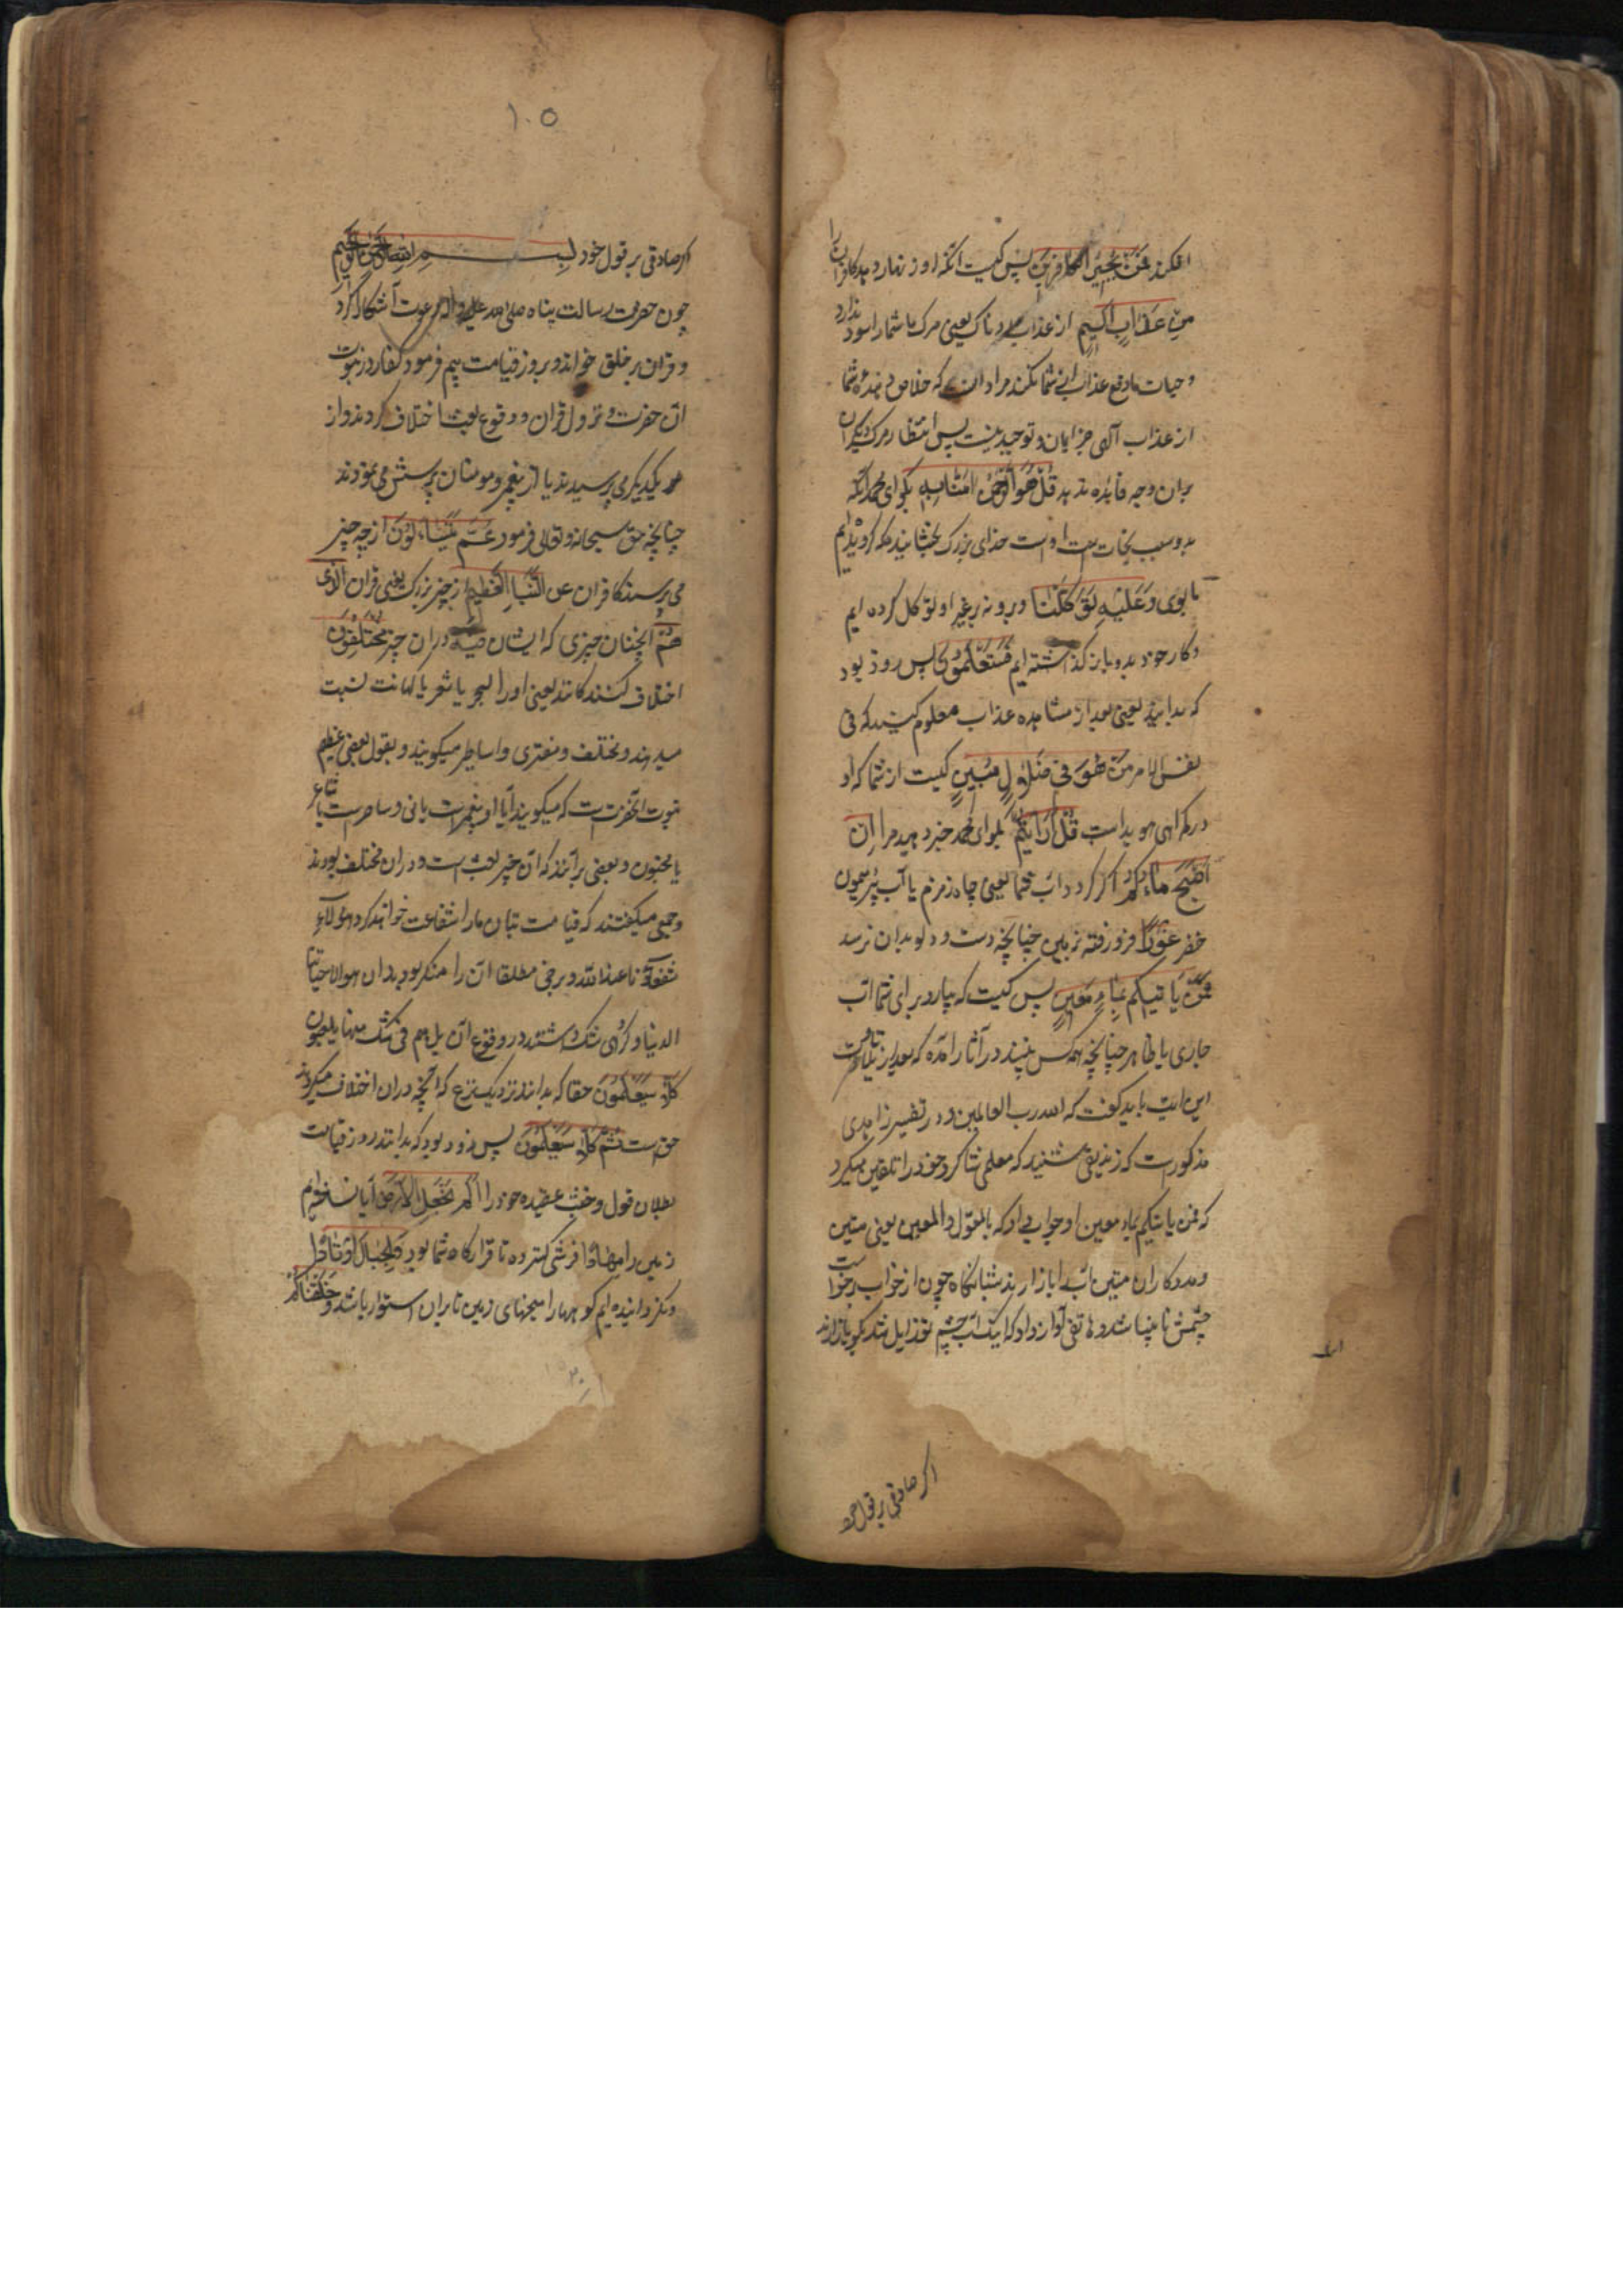 افکند فَمَنْ یُجِیرُ الْکَافِرِینَ پس کیست انکه او زنهار دهد کافران را
مِنْ عَذَابٍ اَلِیمٍ از عذاب دردناک یعنی مرک ما شما را سود ندارد
و حیات ما دفع عذاب از شما نکند مراد انست که خلاص دهنده شما
از عذاب الهی جز ایمان و توحید نیست پس انتظار مرک دیکران
بران وجه فایده ندهد قُلْ هُوَ الرَّحْمٰنُ اٰمَنَّا بِهِ بکو ای محمد انکه
خدای بزرک بخشاینده که کرویده ایم
باوی وَعَلَیْهِ تَوَکَّلْنَا و برو نه بر غیر او توکل کرده ایم
و کار خود بدو باز کذاشته ایم فَسَتَعْلَمُونَ پس زود بود
که بدانید یعنی بعد از مشاهده عذاب معلوم کنید که فی
نفس الامر مَنْ هُوَ فِی ضَلَالٍ مُبِینٍ کیست از شما که او
در کمراهی هویداست قُلْ اَرَاَیْتُمْ بکو ای محمد خبر دهید مرا اِنْ
اَصْبَحَ مَاؤُکُمْ اکر کردد اب شما یعنی چاه زمزم یا آب بئر میمون
حفر غَوْرًا فرو رفته بزمین چنانچه دست و دلو بدان نرسد
فَمَنْ یَاْتِیکُمْ بِمَاءٍ مَعِینٍ پس کیست که بیارد برای شما اب
جاری یا ظاهر چنانچه همه کس بیند در آثار امده که بعد از تلاوت
این ایت باید کفت که الله رب العالمین و در تفسیر زاهدی
مذکورست که زندیقی شنید که معلمی شاکرد خود را تلقین میکرد
که فمن یاتیکم بماء معین او جواب داد که بالمعول و المعین یعنی متین
و مددکاران متین اب را باز ارند شبانکاه چون از خواب برخواست
چشمش نابینا شد و هاتفی آواز داد که اینک اب چشم تو زایل شد بکو باز ارند
اکر صادقی بر قول خود
۱۰۵
اکر صادقی بر قول خود بسم الله الرحمن الرحیم
چون حضرت رسالت پناه صلی الله علیه و اله دعوت آشکارا کرد
و قران بر خلق خواند و بروز قیامت بیم فرمود کفار در نبوت
ان حضرت و نزول قران و وقوع بعث اختلاف کردند و از
یکدیکر می پرسیدند یا از پیغمبر و مومنان پرسش می نمودند
چنانچه حق سبحانه و تعالی فرمود عَمَّ یَتَسَاءَلُونَ از چه چیز
می پرسند کافران عن النَّبَإِ الْعَظِیمِ از چیز بزرک یعنی قران الَّذِی
هُمْ انچنان چیزی که ایشان فِیهِ دران چیز مُخْتَلِفُونَ
اختلاف کنندکانند یعنی او را بسحر یا شعر یا کهانت نسبت
میدهند و مختلف و مفتری و اساطیر میکویند و بقول بعضی خبر عظیم
نبوت انحضرت است که میکویند آیا او پیغمبرست یا نی و ساحرست یا شاعر
یا مجنون و بعضی برانند که ان خبر بعث است و دران مختلف بودند
و جمعی میکفتند که قیامت بتان ما را شفاعت خواهند کرد هولاء
شفعاؤنا عند الله و برخی مطلقا ان را منکر بودند ان هی الا حیاتنا
الدنیا و کروهی شک داشتند در وقوع ان بل هم فی شک منها بل هم منها عمون
کَلَّا سَیَعْلَمُونَ حقا که بدانند نزدیک نزع که انچه دران اختلاف میکردند
حق است ثُمَّ کَلَّا سَیَعْلَمُونَ پس زود بود که بدانند روز قیامت
بطلان قول و خبث عقیده خود را اَلَمْ نَجْعَلِ الْاَرْضَ ایا نساختیم
زمین را مِهَادًا فرشی کسترده تا قرارکاه شما بود وَالْجِبَالَ اَوْتَادًا
و نکردانیده ایم کوهها را میخهای زمین تا بران استوار باشد وَخَلَقْنَاکُمْ